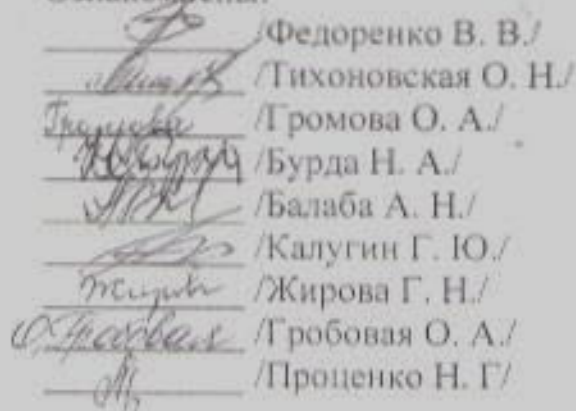 /Федоренко В. В./
/Тихоновская О. Н./
Громова /Громова О. А./
/Бурда Н. А./
/Балаба А. Н./
/Калугин Г. Ю./
/Жирова Г. Н./
/Гробовая О. А./
/Проценко Н. Г/